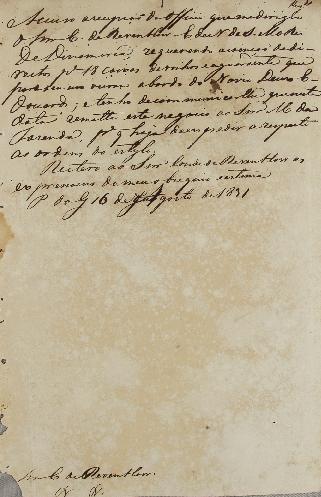 Accuso a recepção do officio que me dirigio
o Snr C. de Reventlow E. de N. de S. M. o R.
de Dinamarca, requerendo a izenção de di
reitos pª 18 caixas de vinho e aguardente que
pª o seu uso vierão a bordo do Navio Duas E
Edouard; e tenho de communicar lhe que nesta
data remetto este negocio ao Snr M. da
Fazenda, pª q haja de expedir a respeito
as ordens do estylo.
Reitero ao Snr Conde de Reventlow as
expressoens do meu obsequio e estima
P. do G. 16 de Agosto de 1831
Snr C. de Reventlow.